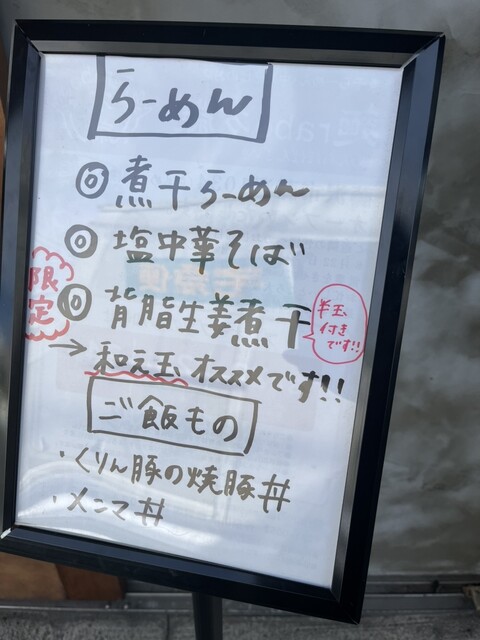 らーめん
◎煮干らーめん
◎塩中華そば
限定
◎背脂生姜煮干
半玉
付き
です!!
→和え玉オススメです!!
ご飯もの
・くりん豚の焼豚丼
・メンマ丼